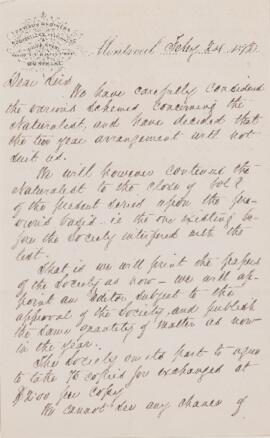 MONTREAL
Montreal Feby 24 187
Dear Sirs
We have carefully considered
the various schemes concerning the
Naturalist, and have decided that
the ten year arrangement will not
suit us.
We will however continue the
Naturalist to the close of vol 8
of the present series upon the pre-
vious basis - ie the one existing be-
fore the Society interfered with the
list.
That is we will print the papers
of the Society as now - we will ap-
point an editor subject to the
approval of the Society, and publish
the same quantity of matter as now
in the year.
The Society on its part to agree
to take 75 copies for exchanges at
$2.00 per copy
We cannot see any chance of